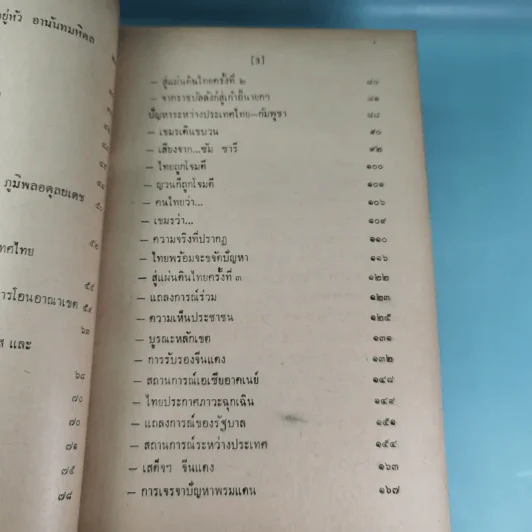 อยู่หัว อานันทมหิดล
ภูมิพลอดุลยเดช
๕๐
๕๒
ทศไทย
๕๕
การโอนอาณาเขต ๕๙
๖๓
ส และ
๖๘
๗๐
๗๐
๗๑
๗๕
๗๘
[๘]
— สู่แผ่นดินไทยครั้งที่ ๒ ๘๐
— จากราชบัลลังก์สู่เก้าอี้นายกฯ ๘๑
ปัญหาระหว่างประเทศไทย—กัมพูชา ๘๘
— เขมรเดินขบวน ๙๐
— เสียงจาก...ซัม ซารี ๙๒
— ไทยถูกโจมตี ๑๐๐
— ญวนก็ถูกโจมตี ๑๐๑
— คนไทยว่า... ๑๐๖
— เขมรว่า... ๑๐๙
— ความจริงที่ปรากฏ ๑๑๐
— ไทยพร้อมจะขจัดปัญหา ๑๑๖
— สู่แผ่นดินไทยครั้งที่ ๓ ๑๒๒
— แถลงการณ์ร่วม ๑๒๓
— ความเห็นประชาชน ๑๒๕
— บูรณะหลักเขต ๑๓๑
— การรับรองจีนแดง ๑๓๒
— สถานการณ์เอเซียอาคเนย์ ๑๔๘
— ไทยประกาศภาวะฉุกเฉิน ๑๔๙
— แถลงการณ์ของรัฐบาล ๑๕๑
— สถานการณ์ระหว่างประเทศ ๑๕๔
— เสด็จฯ จีนแดง ๑๖๓
— การเจรจาปัญหาพรมแดน ๑๖๗